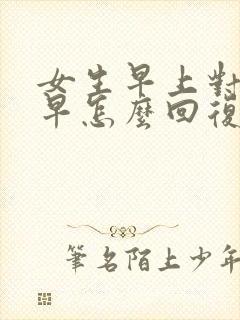 女生早上對
早怎麼回復
筆名陌上少年